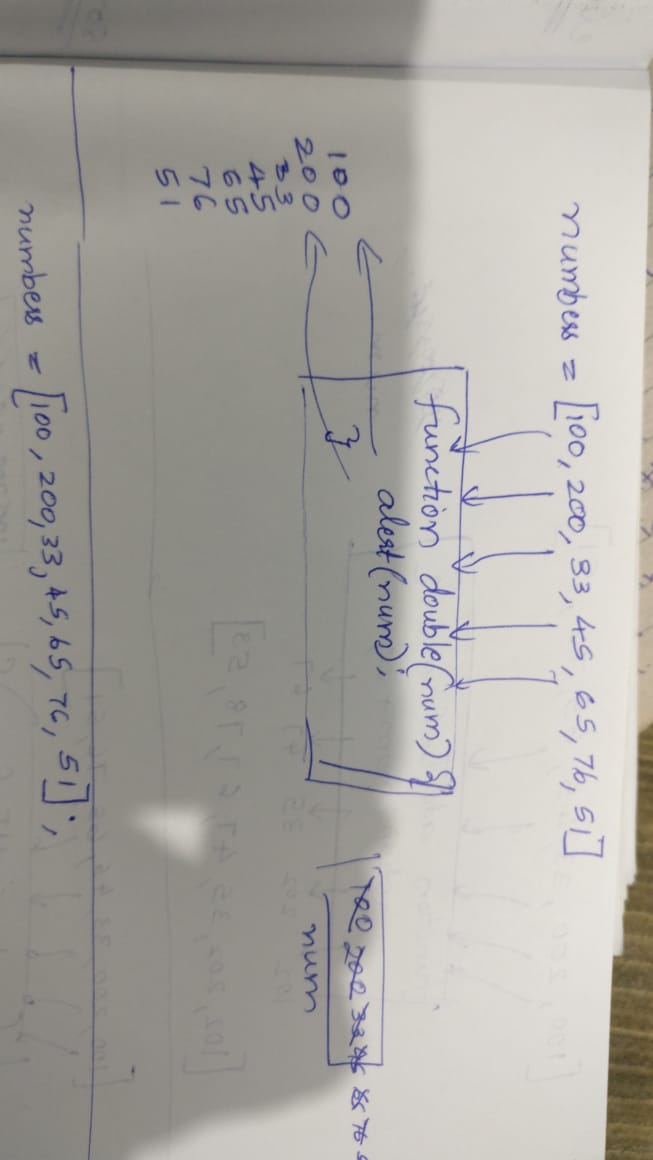 numbers = [100, 200, 33, 45, 65, 76, 51]
function double(num) {
alert(num);
}
100
200
33
45
65
76
51
100 200 33 45 65 76
num
numbers = [100, 200, 33, 45, 65, 76, 51];